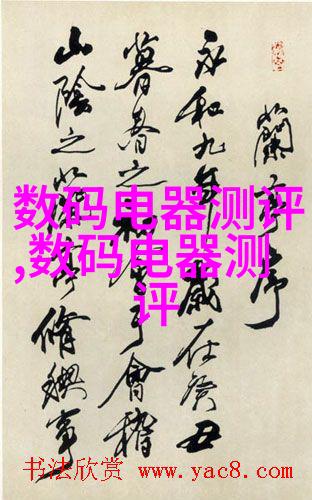 蘭亭序
永和九年歲在癸丑
暮春之初會于會稽
山陰之蘭亭脩禊事
数码电器测评
,数码电器测
评
书法欣赏 www.yac8.com